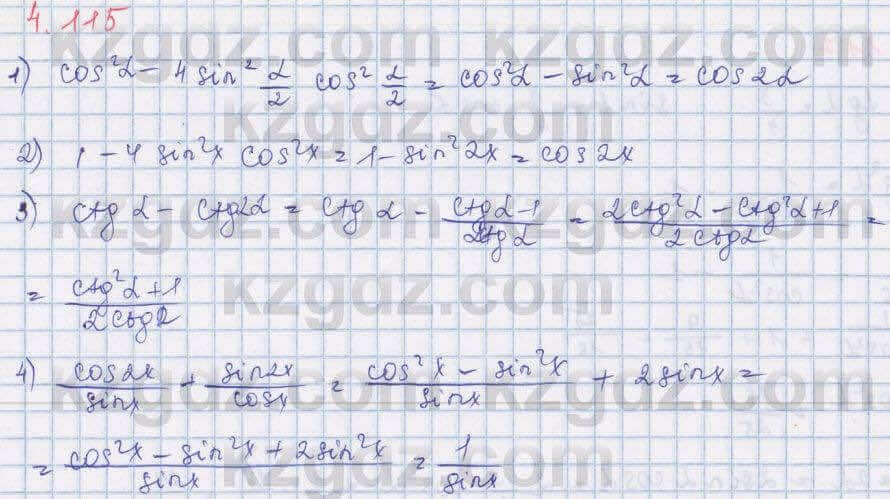 4.115
1) cos²α - 4 sin² α/2 cos² α/2 = cos²α - sin²α = cos2α
2) 1 - 4 sin²x cos²x = 1 - sin²2x = cos2x
3) ctg α - ctg2α = ctg α - (ctgα-1)/(2ctg α) = (2ctg²α - ctg²α+1)/(2ctgα) =
= (ctg²α+1)/(2ctgα)
4) cos2x/sinx + sin2x/cosx = (cos²x - sin²x)/sinx + 2sinx =
= (cos²x - sin²x + 2sin²x)/sinx = 1/sinx
kzgdz.com
kzgdz.com
kzgdz.com
kzgdz.com
kzgdz.com
kzgdz.com